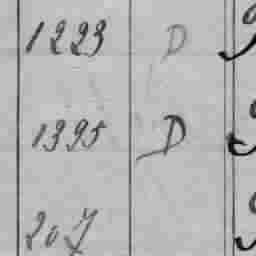 1223 D
1395 D
207